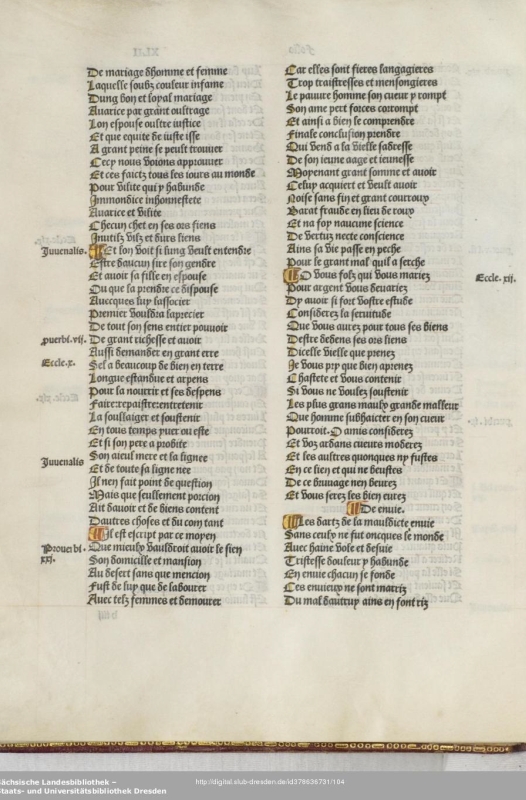 De mariage dhomme et femme
Laquelle soubz couleur infame
Dung bon et loyal mariage
Avarice par grant oultrage
Lon espouse oultre iustice
Et que equite de iuste isse
A grant peine se peult trouuer
Cecy nous voions approuuer
Et ces faictz tous les iours au monde
Pour vilite qui y habunde
Immondice inhonnestete
Avarice et vilite
Checun chet en ses ors fiens
Inutilz vilz et durs liens
Juuenalis.
Et lon voit si lung veult entendre
Estre daucun sire son gendre
Et auoir sa fille en espouse
Ou que la prendre ce dispouse
Auecques luy lassocier
Premier vouldra lapprecier
De tout son sens entier pouuoir
puerbi. vii.
De grant richesse et auoir
Aussi demander en grant erre
Eccle. x.
Sel a beaucoup de bien en terre
Longue estandue et arpens
Pour la nourrir et ses despens
Faire repaistre entretenir
La soullaiger et soustenir
En tous temps yuer ou este
Et si son pere a probite
Son aieul mere et sa lignee
Juuenalis
Et de toute sa ligne nee
Il nen fait point de question
Mais que seullement porcion
Ait dauoir et de biens content
Dautres choses et du contant
Il est escript par ce moyen
Prouerbi.
xxi.
Que mieulx vauldroit auoir le sien
Son domicille et mansion
Au desert sans que mencion
Fust de luy que de labourer
Auec telz femmes et demourer
Car elles sont fieres langagieres
Trop traistresses et mensongieres
Le pauure homme son cueur y rompt
Son ame pert forces corrompt
Et ainsi a bien le comprendre
Finale conclusion prendre
Qui vend a la vielle sadresse
De son ieune aage et ieunesse
Moyenant grant somme et auoir
Celuy acquiert et veult auoir
Noise sans fin et grant courroux
Barat fraude en lieu de roux
Et na foy naucune science
De vertuz necte conscience
Ains sa vie passe en peche
Pour le grant mal quil a serche
Eccle. xii.
O vous folz qui vous mariez
Pour argent vous deuariez
Dy auoir si fort vostre estude
Considerez la seruitude
Que vous aurez pour tous ses biens
Destre dedens ses ors liens
Dicelle vielle que prenez
Je vous pry que bien aprenez
Chastete et vous contenir
Si vous ne voulez soustenir
Les plus grans maulx grande malleur
Que homme subhaicter en son cueur
Pourroit. O amis considerez
Et voz ardans cueurs moderez
Et les aultres quonques ny fustes
En ce lien et qui ne beustes
De ce buurage nen beurez
Et vous serez les bien eurez
De enuie.
Les dartz de la mauldicte enuie
Sans ceulx ne fut oncques le monde
Auec haine vole et desuie
Tristesse douleur y habunde
En enuie chacun se fonde
Ces enuieux ne sont marriz
Du mal dautruy ains en sont riz
Sächsische Landesbibliothek –
Staats- und Universitätsbibliothek Dresden
http://digital.slub-dresden.de/id378636731/104